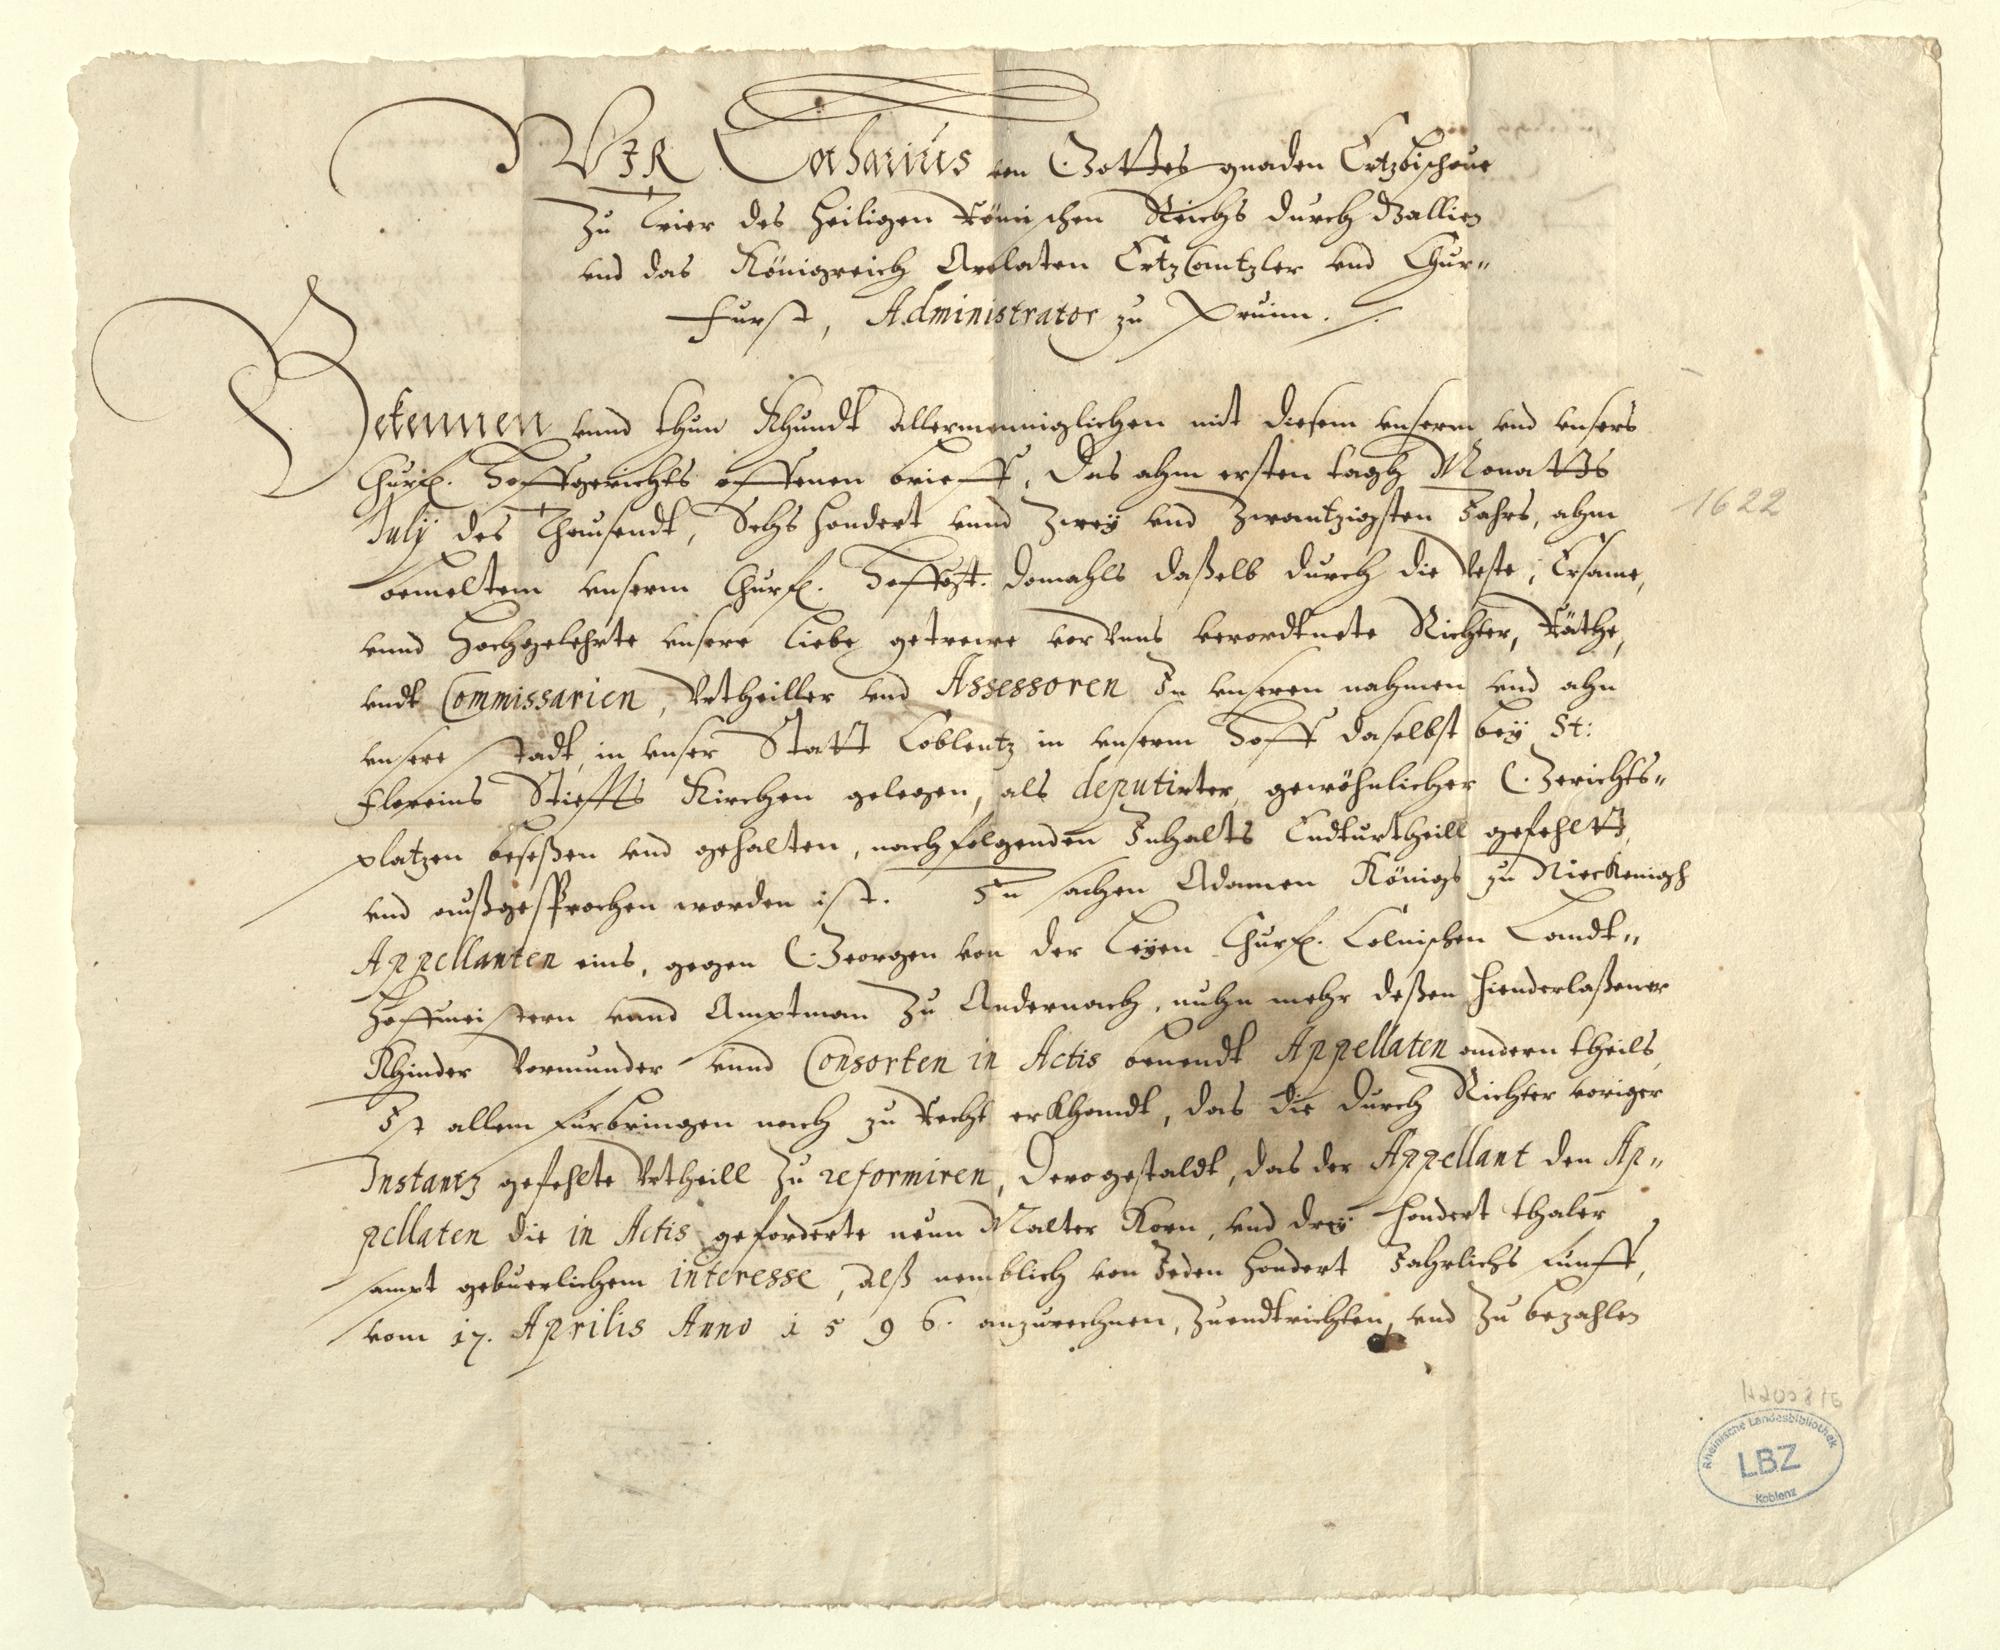 WIR Lotharius von Gottes gnaden Ertzbischoue
zu Trier des heiligen Römischen Reichs durch Gallien
vnd das Königreich Arelaten Ertz Cantzler vnd Chur„
furst, Administrator zu Pruim.
Bekennen vnnd thun Khundt allermenniglichen mit diesem vnserm vnd vnsers
Churf. Hoffgerichts offenen brieff, Das ahm ersten tagh Monatts
Julÿ des Thausendt, Sechs hondert vnnd Zweÿ vnd Zwantzigsten Jahrs, ahm
bemeltem vnserm Churf. Hoffgt. domahls daßelb durch die Veste, Ersame,
vnnd Hochgelehrte vnsere Liebe getrewe vor Vnns verordtnete Richter, Räthe,
vndt Commissarien, Vrtheiller vnd Assessoren In vnseren nahmen vnd ahn
vnsere stadt, in vnser Statt Coblentz in vnserm Hoff daselbst beÿ St:
Floreins Stieffts Kirchen gelegen, als deputirter gewöhnlicher Gerichts„
platzen beseßen vnd gehalten, nachfolgenden Inhalts Endturtheill gefehltt,
vnd außgesprochen worden ist. In sachen Adamen Königs zu Nieckenigh
Appellanten eins, gegen Georgen von der Leÿen Churf. Colnischen Landt„
Hoffmeistern vnnd Amptman Zu Andernach, nuhn mehr deßen hienderlaßener
Khinder Vormunder vnnd Consorten in Actis benendt Appellaten andern theils,
Ist allem furbringen nach zu Recht erkhandt, das die durch Richter voriger
Instantz gefehlte Vrtheill Zu reformiren, Derogestaldt, das der Appellant den Ap„
pellaten die in Actis geforderte neun Malter Korn, vnd dreÿ hondert thaler
sampt gebuerlichem interesse, alß nemblich von Jeden hondert Jahrlichs funff,
vom 17. Aprilis Anno 1596. anzurechnen, Zuendtrichten, vnd Zu bezahlen
1622
Rheinische Landesbibliothek
LBZ
Koblenz